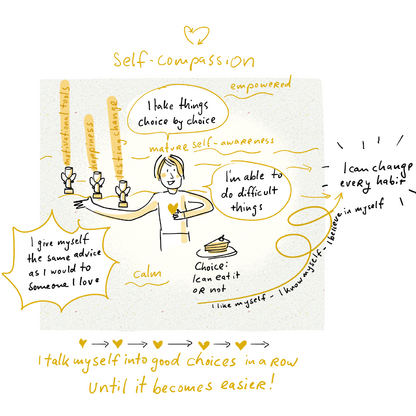 Self-compassion
empowered
motivational tools
happiness
lasting change
I take things
choice by choice
mature self-awareness
I'm able to
do difficult
things
I can change
every habit
I give myself
the same advice
as I would to
someone I love
calm
Choice:
I can eat it
or not
I like myself - I know myself - I believe in myself
I talk myself into good choices in a row
until it becomes easier!